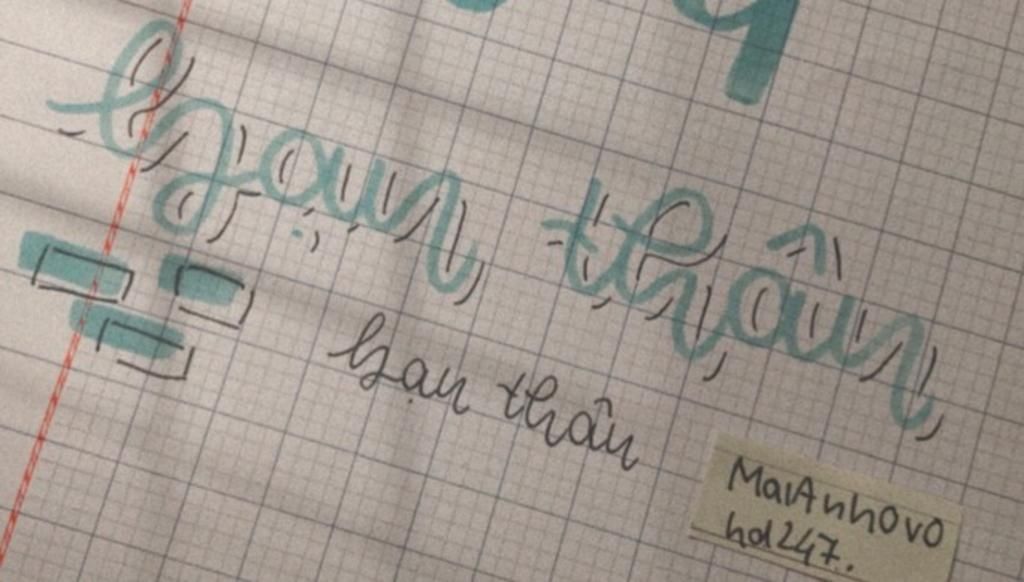 bạn thân
bạn thân
MaiAnh0v0
hd247.